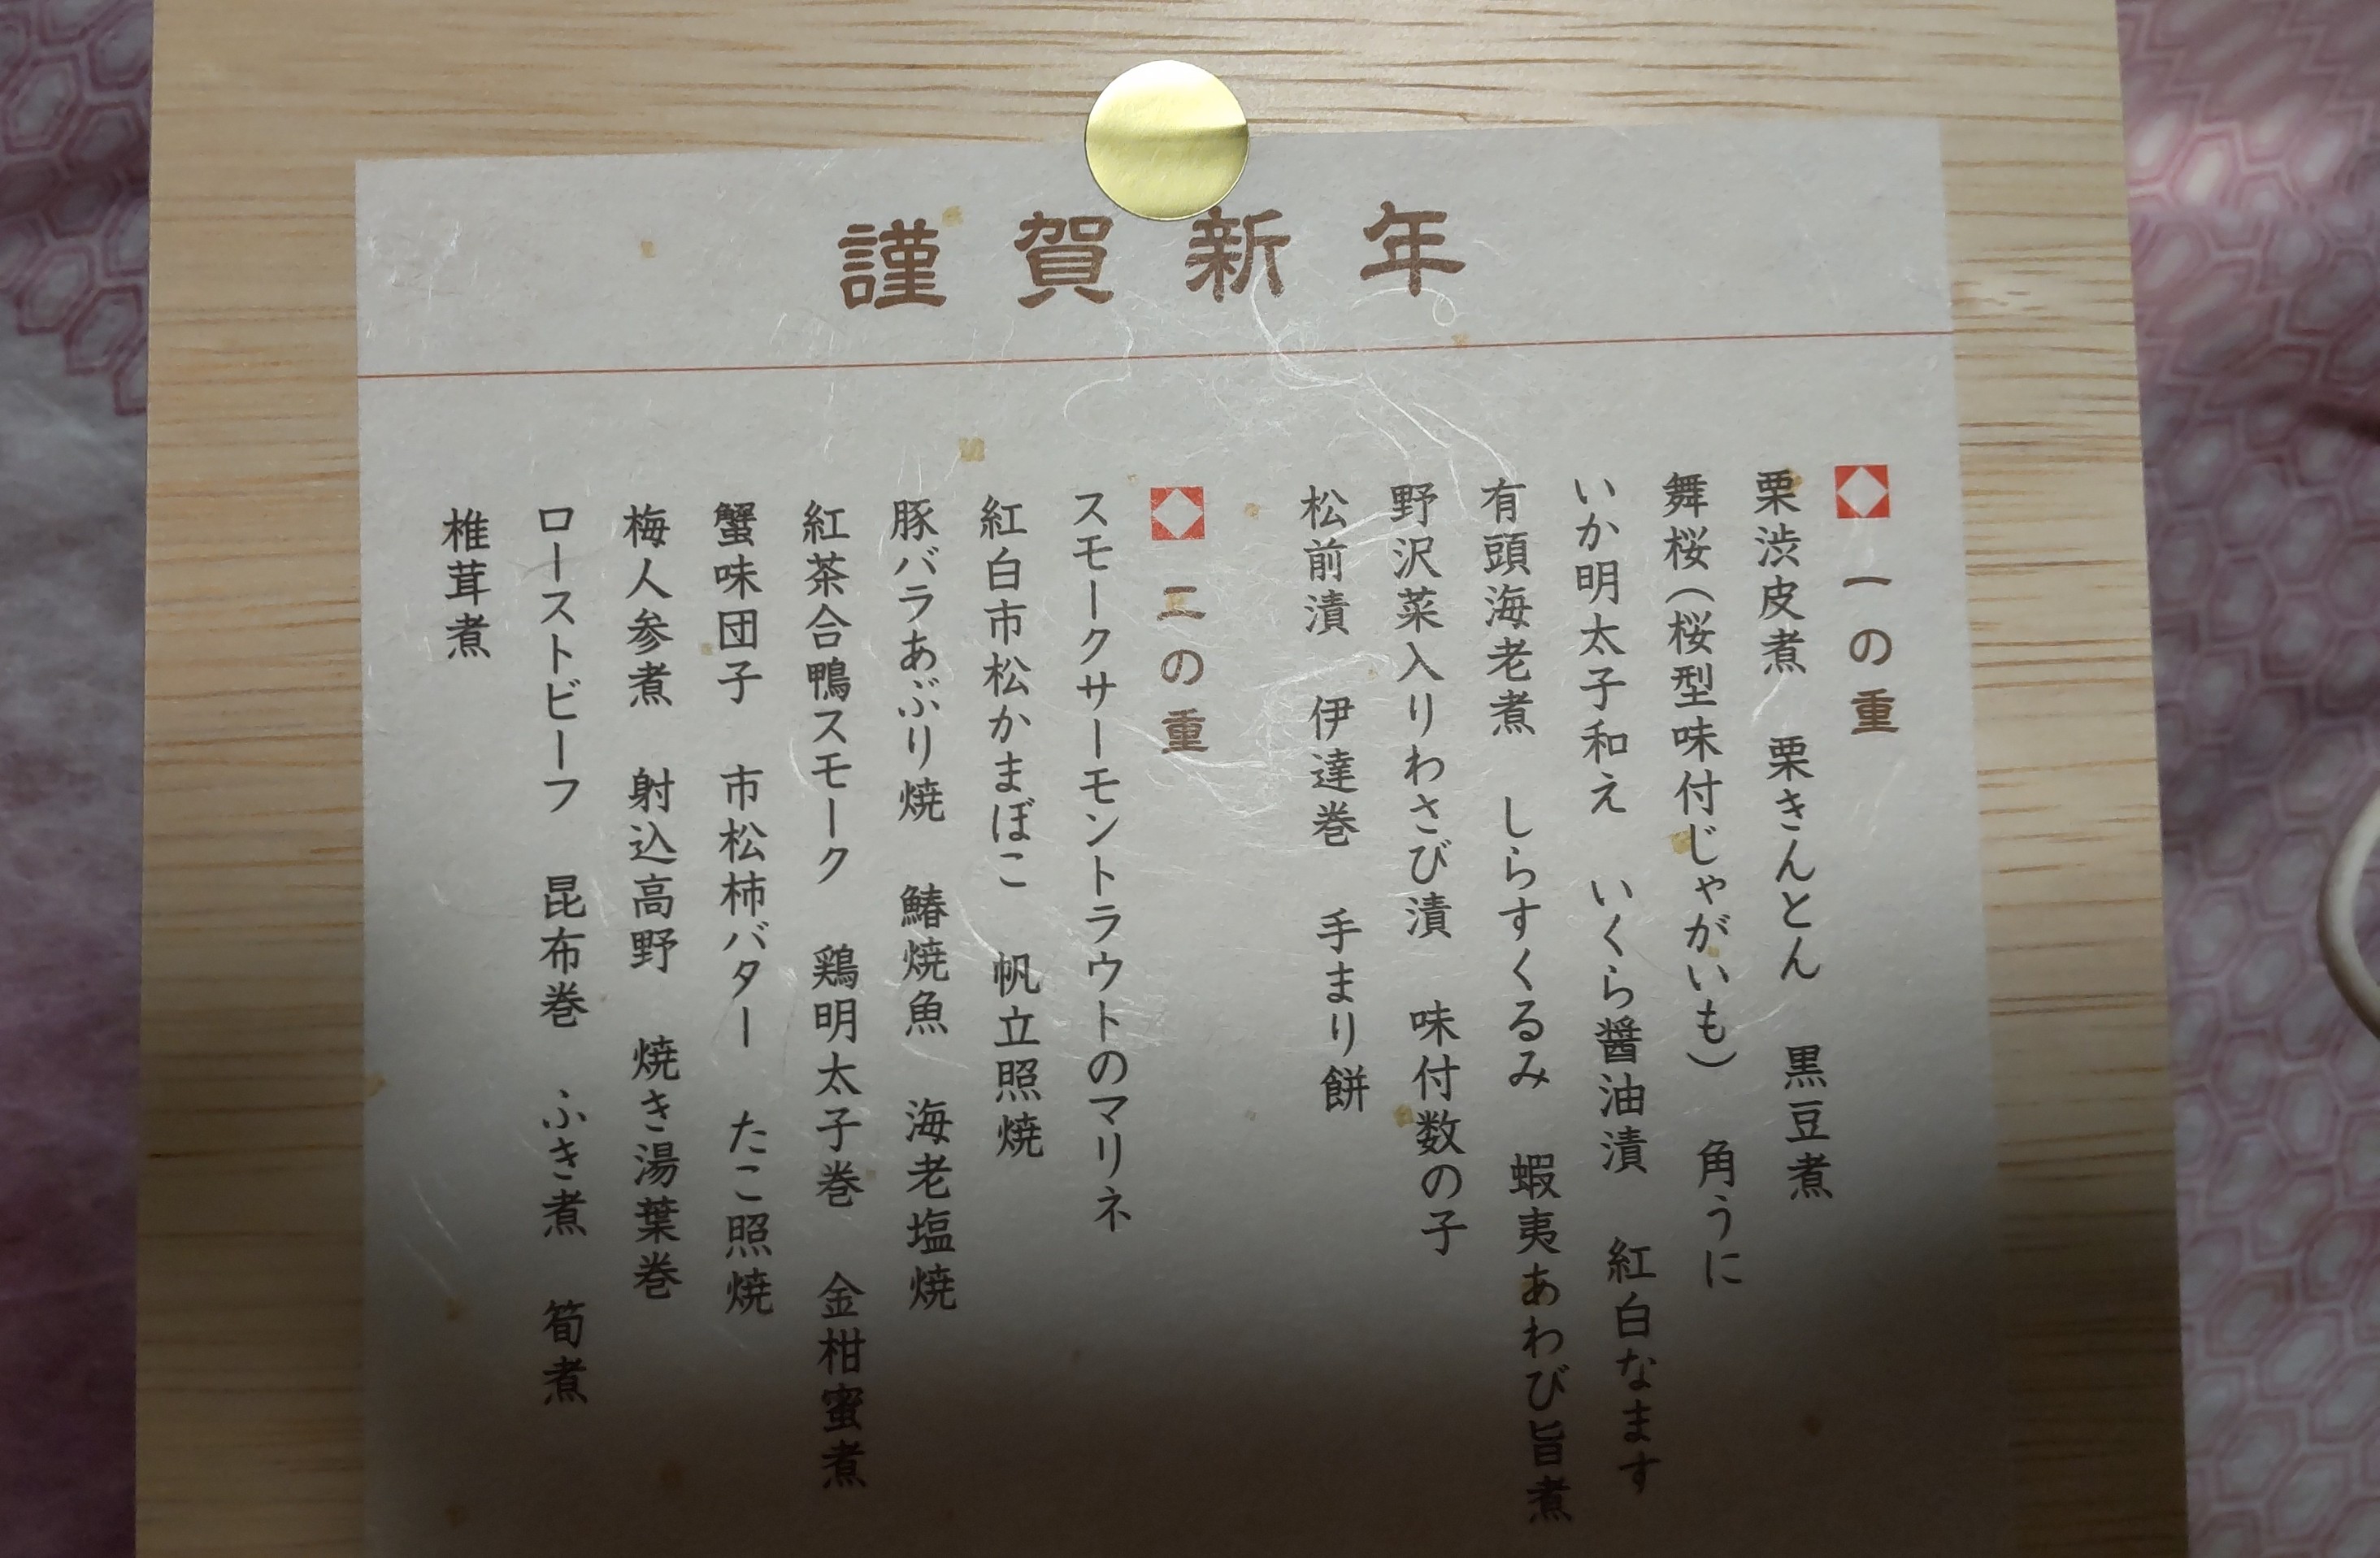 謹賀新年
一の重
栗渋皮煮　栗きんとん　黒豆煮
舞桜（桜型味付じゃがいも）　角うに
いか明太子和え　いくら醤油漬　紅白なます
有頭海老煮　しらすくるみ　蝦夷あわび旨煮
野沢菜入りわさび漬　味付数の子
松前漬　伊達巻　手まり餅
二の重
スモークサーモントラウトのマリネ
紅白市松かまぼこ　帆立照焼
豚バラあぶり焼　鰆焼魚　海老塩焼
紅茶合鴨スモーク　鶏明太子巻　金柑蜜煮
蟹味団子　市松柿バター　たこ照焼
梅人参煮　射込高野　焼き湯葉巻
ローストビーフ　昆布巻　ふき煮　筍煮
椎茸煮